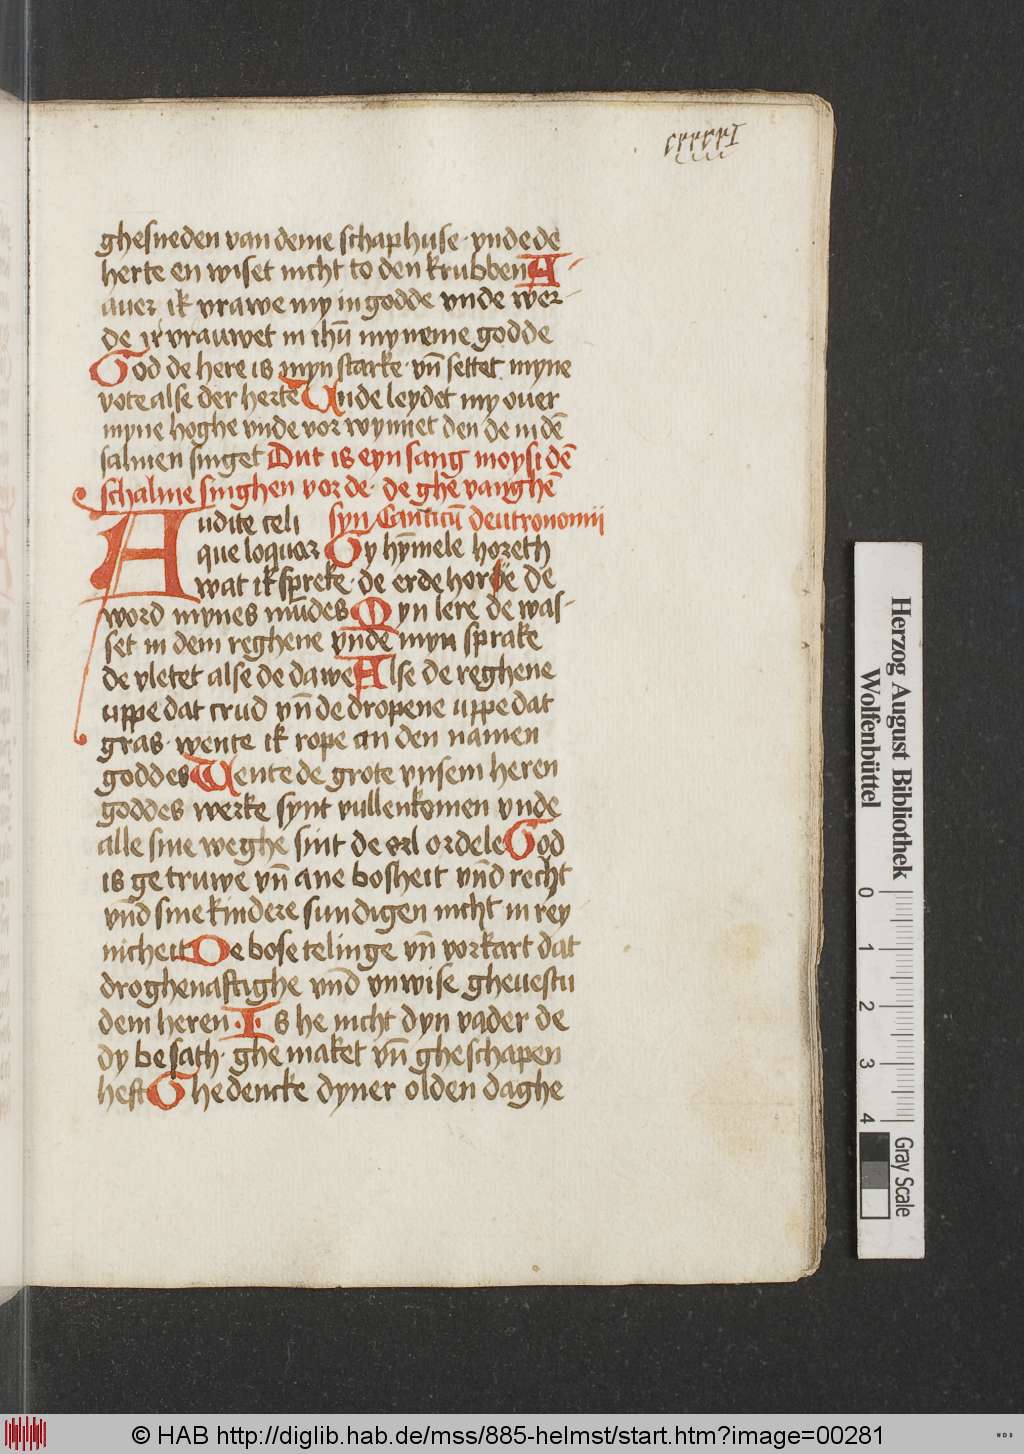 crrrrI
ghesneden van deme schaphuse · vnde de
herte en wiset nicht to den krubben A-
auer ik vrawe my in godde vnde wer-
de vrauwet in ihū myneme godde
God de here is myn starke · vn̄ settet myne
vote alse der herte Vnde leydet my ouer
myne hoghe vnde vor wynnet den de in dē
salmen singet Dut is eyn sang moysi dē
schalme singhen vor de · de ghe vanghē
Audite celi syn Canticū deutronomii
que loquor Gy hȳmele horeth
wat ik spreke · de erde hore de
word mynes mūdes Myn lere de was-
set in dem reghene vnde myn sprake
de vletet alse de dawe Alse de reghene
uppe dat crud vn̄ de dropene uppe dat
gras · wente ik rope an den namen
goddes Wente de grote vnsem heren
goddes werke synt vullenkomen vnde
alle sine weghe sint de ordele God
is ge truwe vn̄ ane bosheit vn̄d recht
vn̄d sine kindere sundigen nicht in rey
nicheit De bose telinge vn̄ vorkart dat
droghenaftighe vn̄d vnwise gheuestu
dem heren · Is he nicht dyn vader de
dy besath · ghe maket vn̄ gheschapen
heft Ghedencke dyner olden daghe
Herzog August Bibliothek
Wolfenbüttel
0 1 2 3 4
Gray Scale
© HAB http://diglib.hab.de/mss/885-helmst/start.htm?image=00281